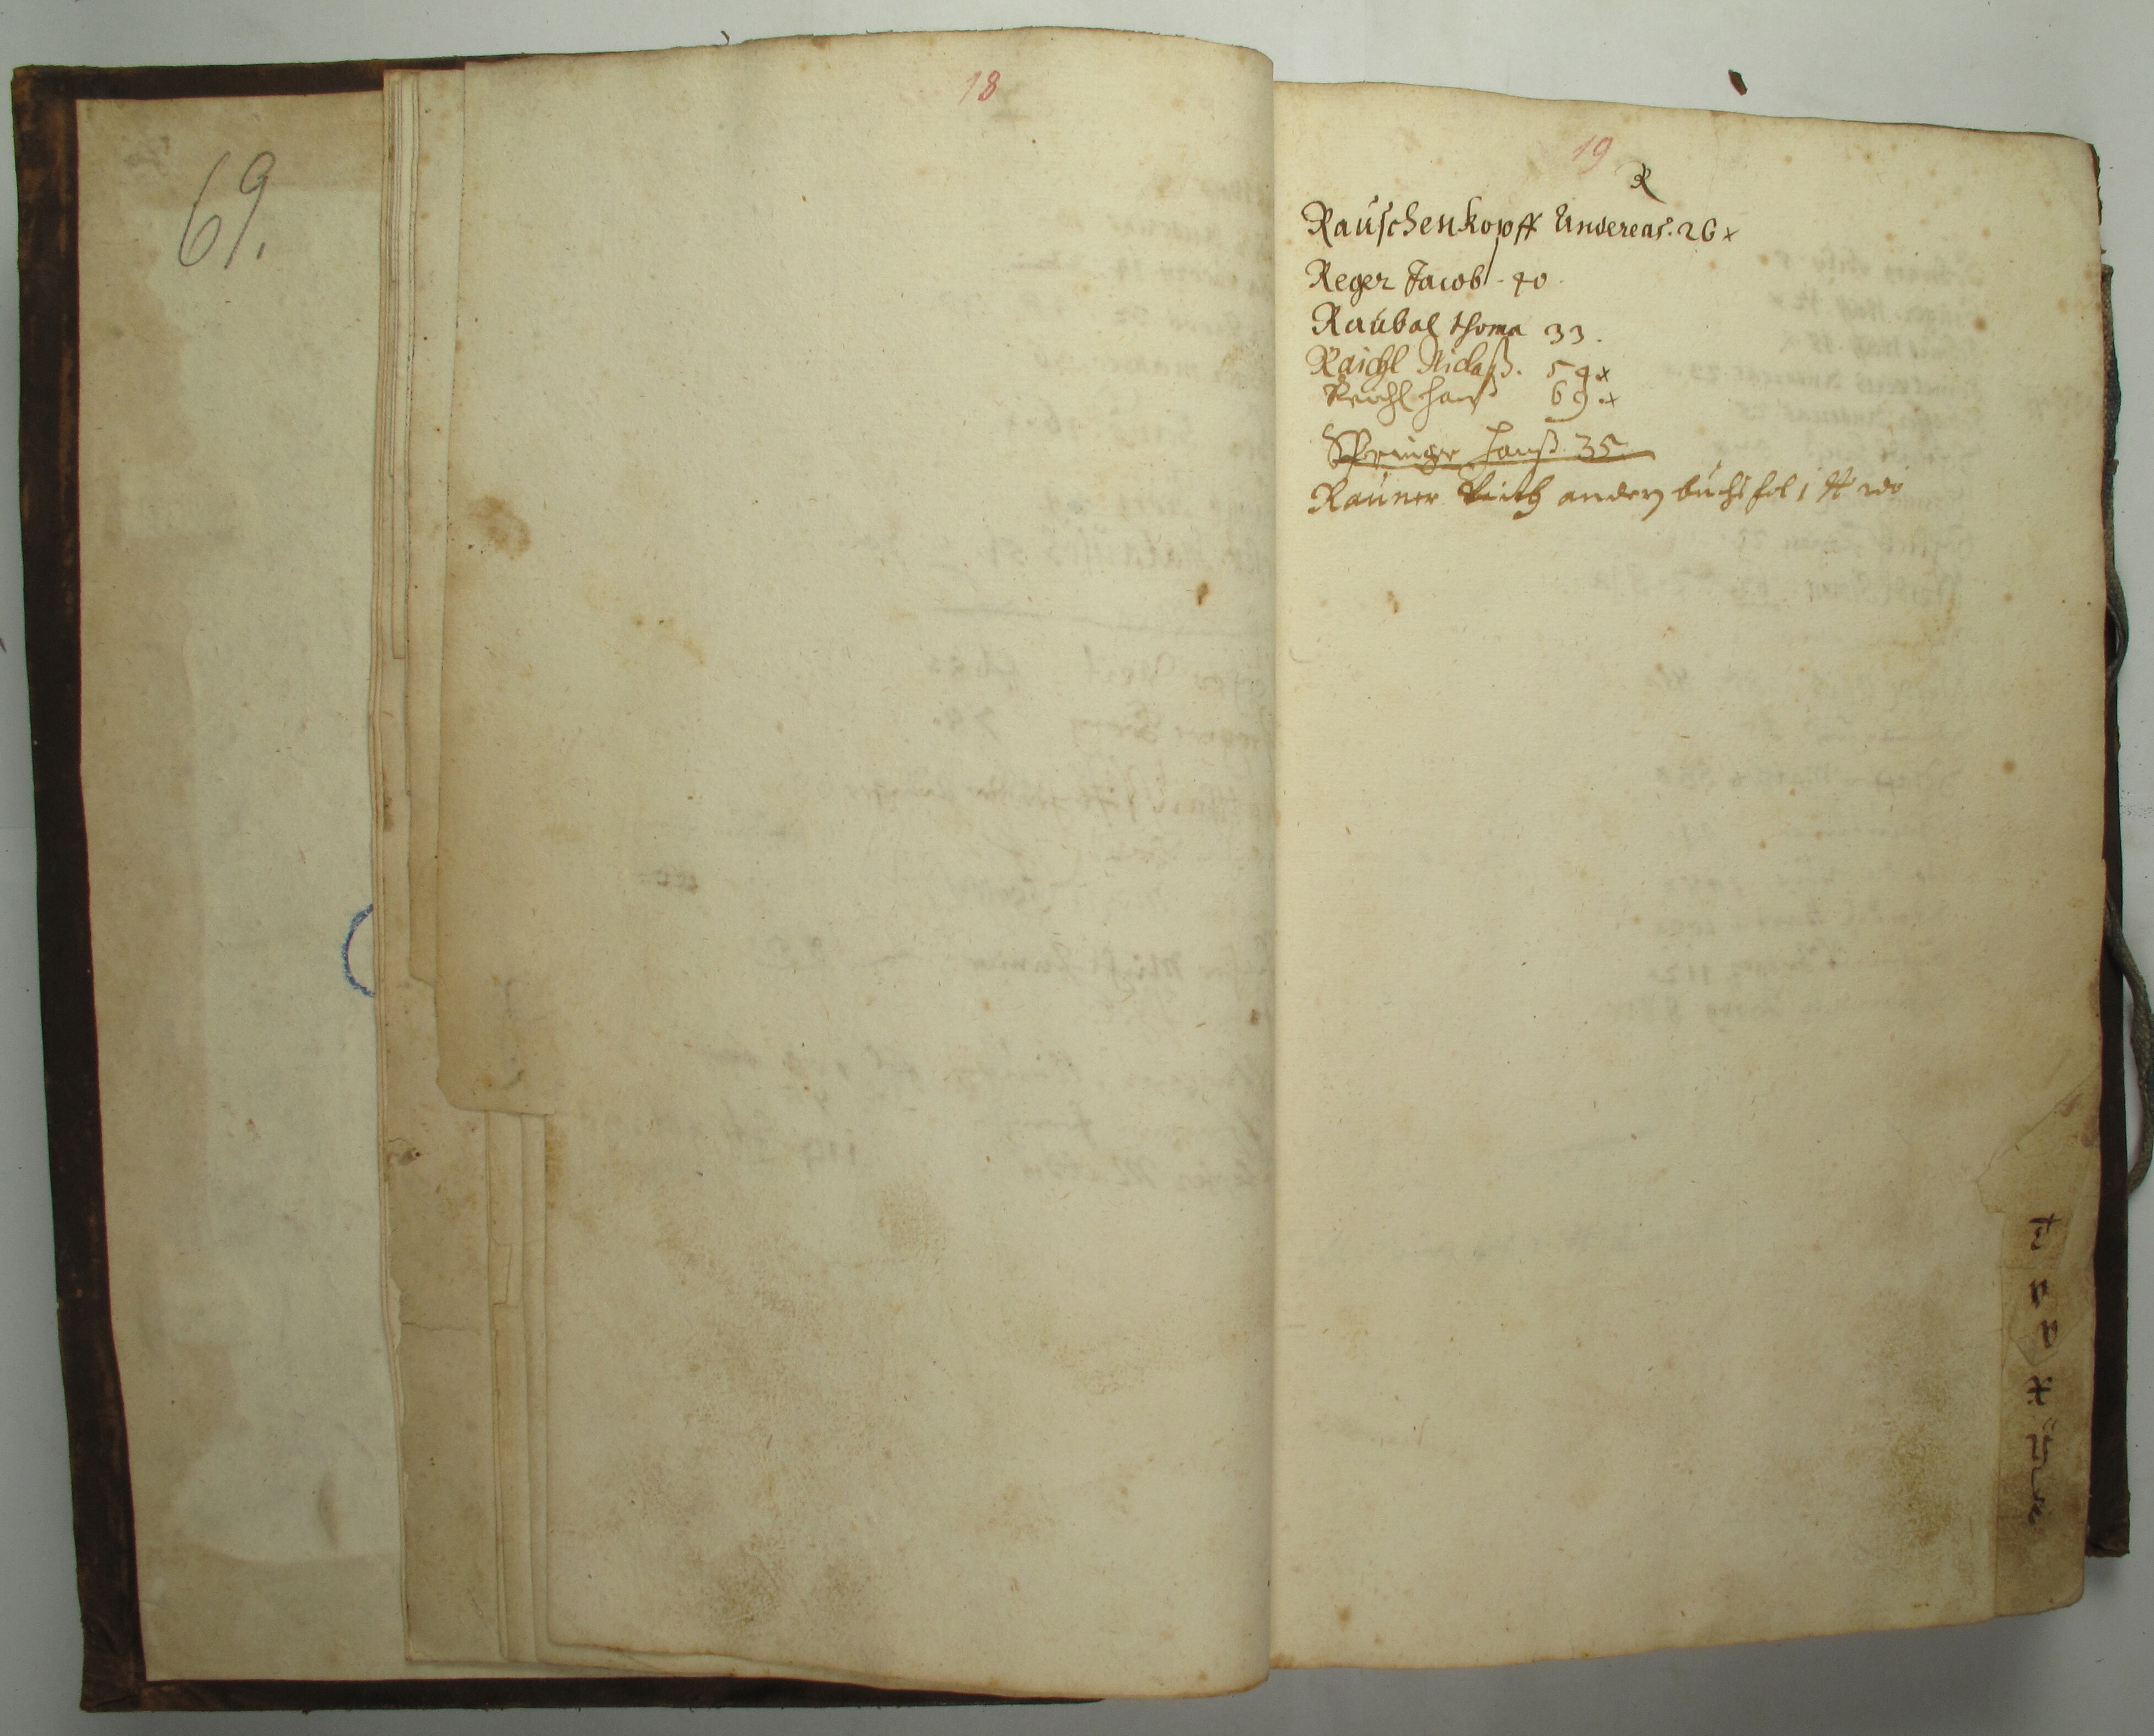 69.
18
19
R
Rauschenkopff Andereas. 26 x
Reger Jacob - 40
Raubal thoma 33.
Raichl Niclaß. 54 x
Reichl hanß 69. x
Springer hanß. 35
Rauner andern buchs fol 1
T
v
v
x
ÿ
z